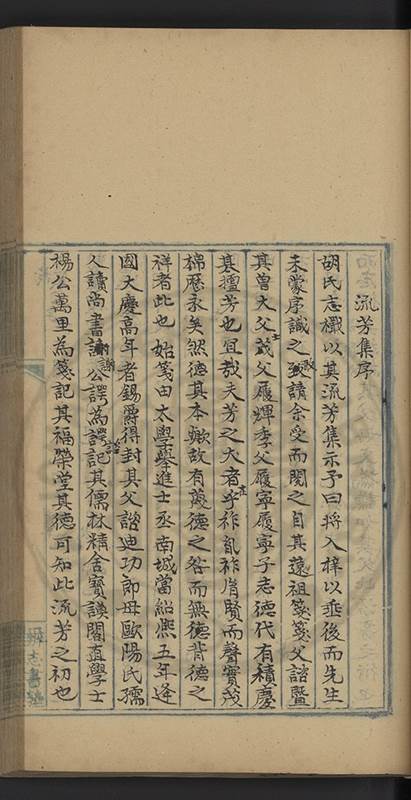 流芳集序
胡氏志櫼以其流芳集示予曰將入梓以垂後而先生
未蒙序識之敢請余受而閱之自其遠祖箋箋父諮暨
其曾大父箴父履輝季父履寧履寧子志德代有積慶
基擅芳也宜哉夫芳之大者乎在祚胤祚胤賢而聲實茂
棉歷永矣然德其本歟故有茂德之咎而無德背德之
祥者此也始箋由太學舉進士丞南城當紹熙五年逢
國大慶高年者錫爵得封其父諮迪功郎母歐陽氏孺
人讀尚書謝公諤為記其儒林精舍寶謨閣直學士
楊公萬里為箋記其福榮堂其德可知此流芳之初也